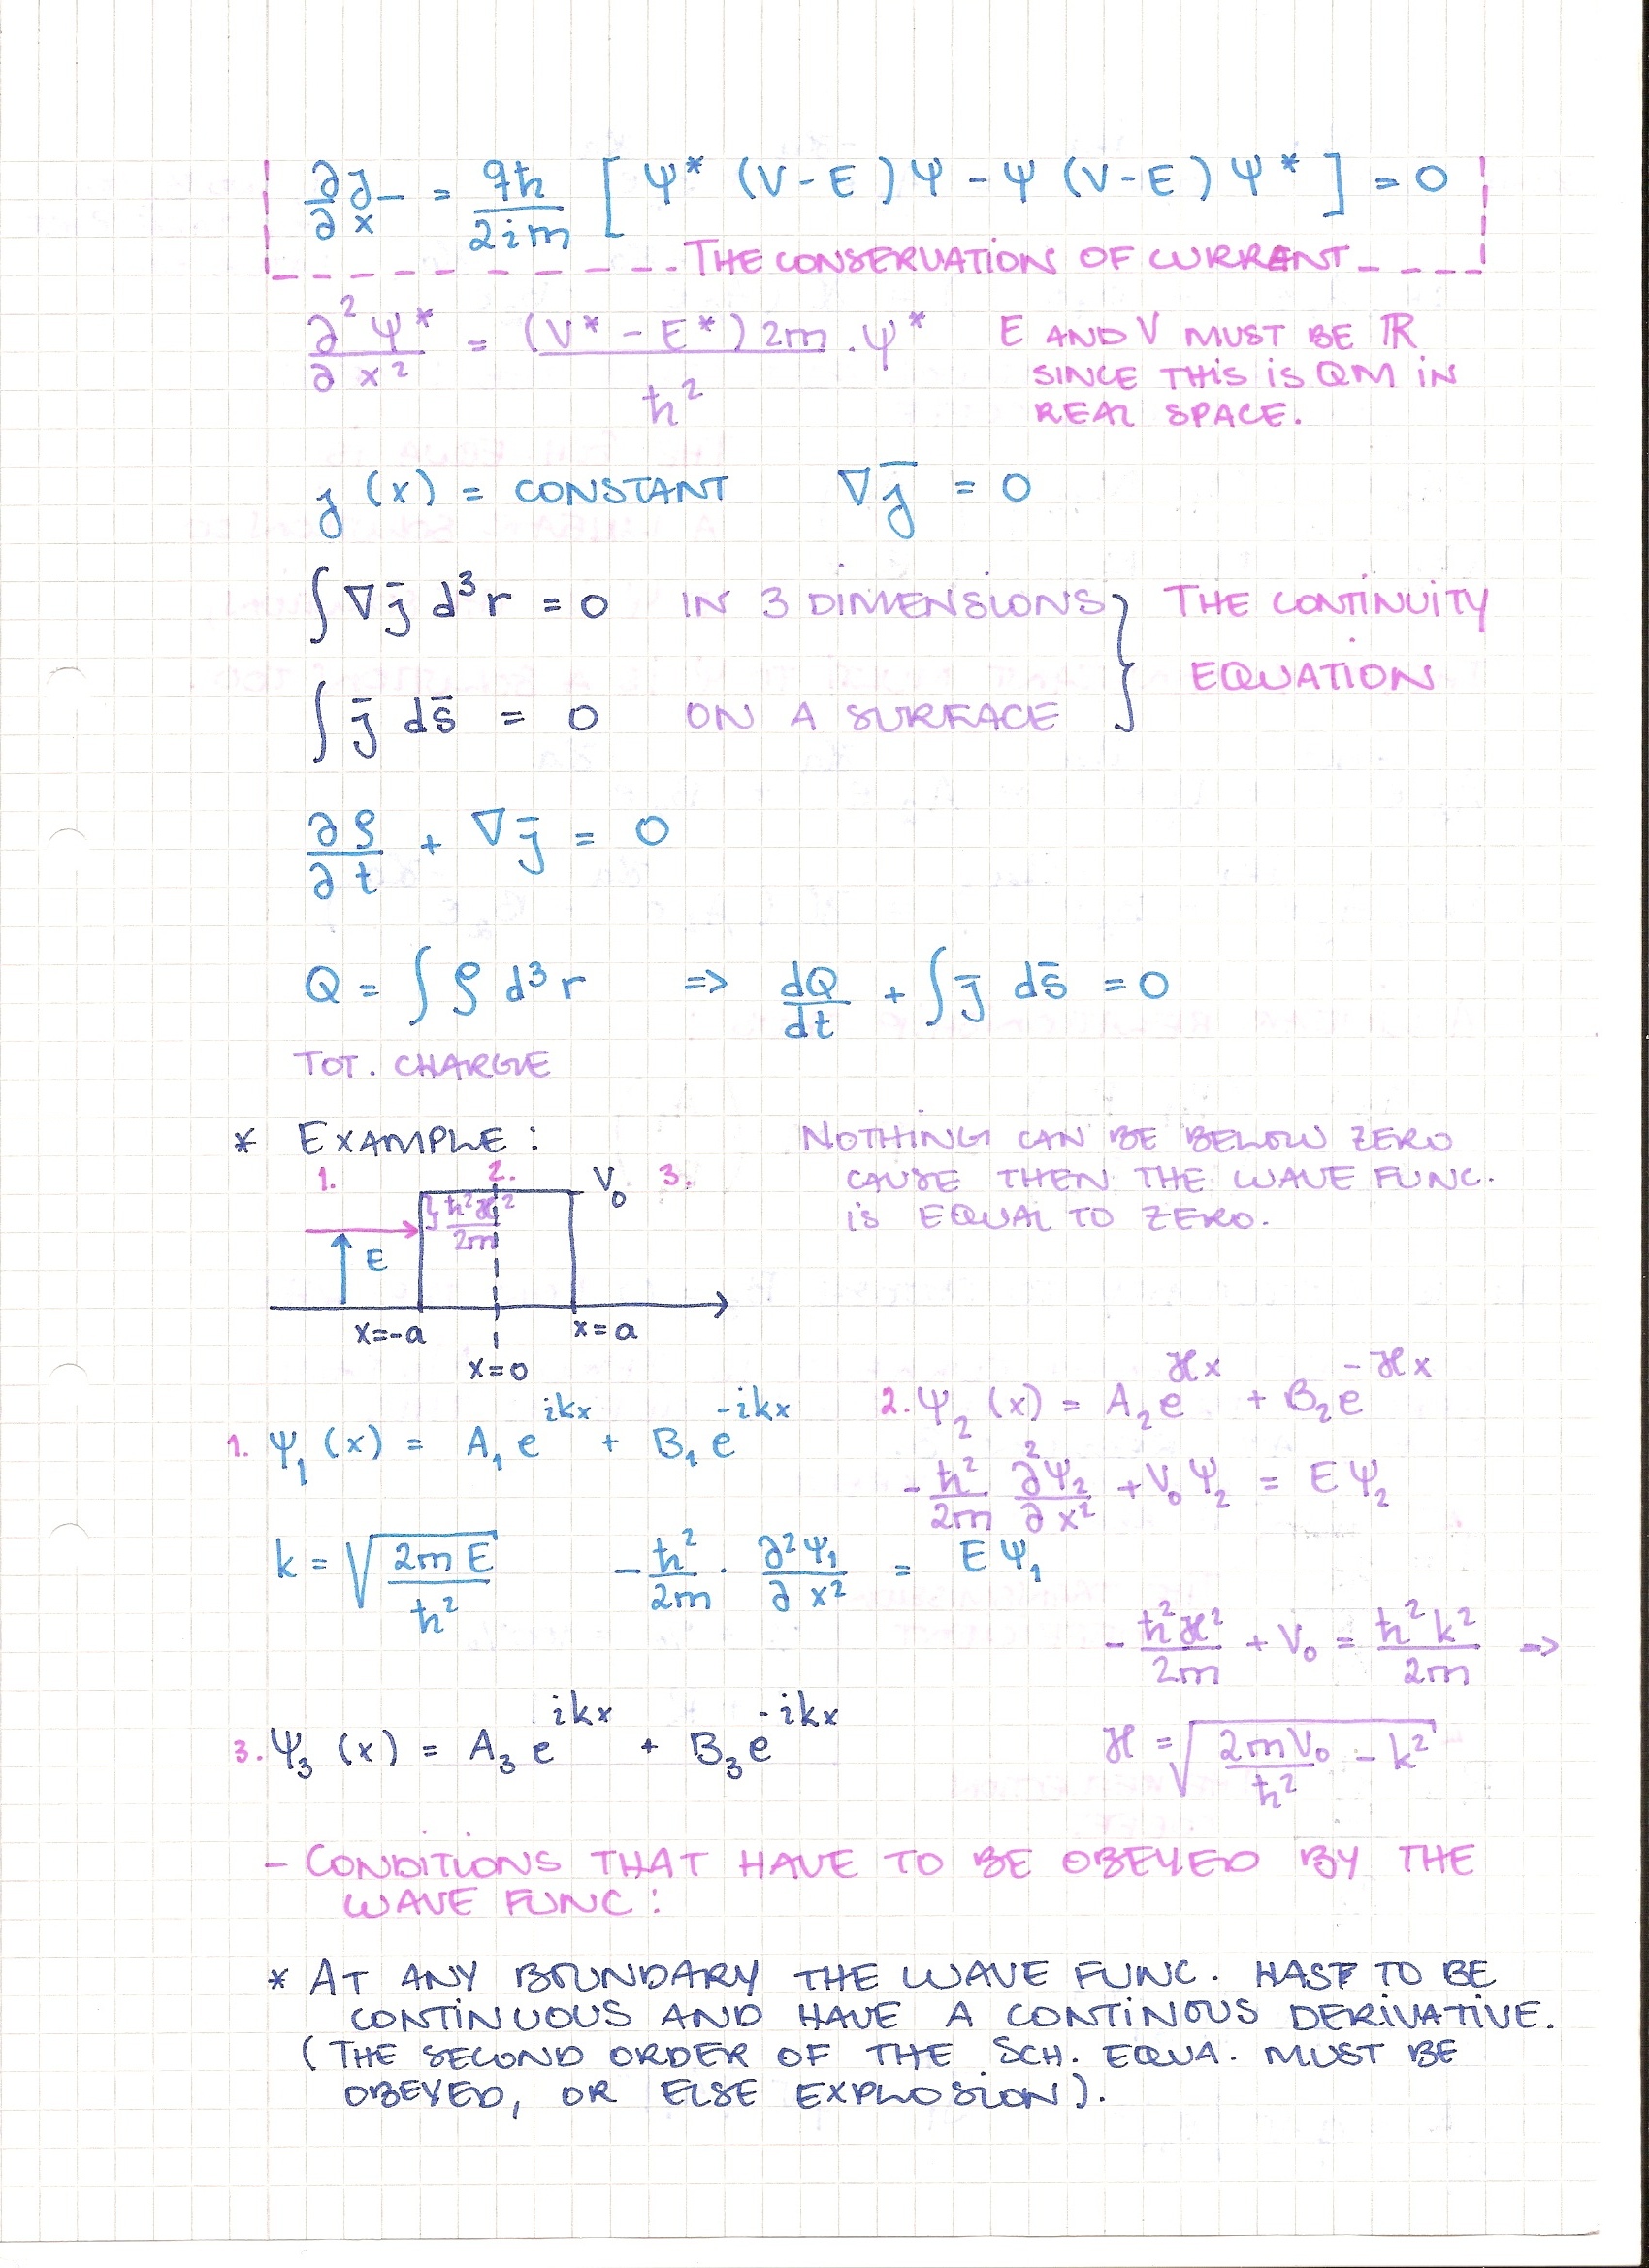 ∂j/∂x = qħ/2im [ψ* (V-E)ψ - ψ (V-E)ψ*] = 0
THE CONSERVATION OF CURRENT
∂²ψ*/∂x² = (V* - E*)2m/ħ² · ψ* E AND V MUST BE ℝ
SINCE THIS IS QM IN
REAL SPACE.
j (x) = CONSTANT ∇j̄ = 0
∫∇j̄ d³r = 0 IN 3 DIMENSIONS } THE CONTINUITY
EQUATION
∫ j̄ ds̄ = 0 ON A SURFACE
∂ρ/∂t + ∇j̄ = 0
Q = ∫ρ d³r => dQ/dt + ∫ j̄ ds̄ = 0
TOT. CHARGE
* EXAMPLE: NOTHING CAN BE BELOW ZERO
CAUSE THEN THE WAVE FUNC.
IS EQUAL TO ZERO.
1. 2. V₀ 3.
ħ²ℋ²/2m
E
x=-a x=a
x=0
1. ψ₁(x) = A₁e^ikx + B₁e^-ikx
2. ψ₂(x) = A₂e^ℋx + B₂e^-ℋx
-ħ²/2m ∂²ψ₂/∂x² + V₀ψ₂ = Eψ₂
k = √(2mE/ħ²) -ħ²/2m · ∂²ψ₁/∂x² = Eψ₁
-ħ²ℋ²/2m + V₀ = ħ²k²/2m =>
3. ψ₃(x) = A₃e^ikx + B₃e^-ikx
ℋ = √(2mV₀/ħ² - k²)
- CONDITIONS THAT HAVE TO BE OBEYED BY THE
WAVE FUNC:
* AT ANY BOUNDARY THE WAVE FUNC. HAS TO BE
CONTINUOUS AND HAVE A CONTINOUS DERIVATIVE.
(THE SECOND ORDER OF THE SCH. EQUA. MUST BE
OBEYED, OR ELSE EXPLOSION).